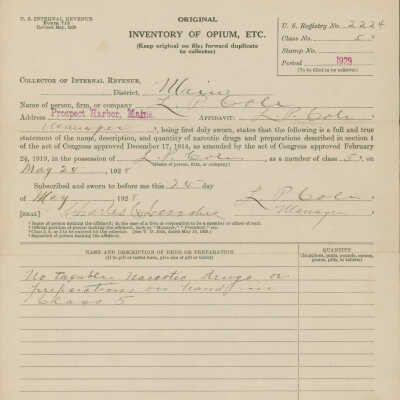 U. S. INTERNAL REVENUE
ORIGINAL
INVENTORY OF OPIUM, ETC.
(Keep original on file; forward duplicate
to collector)
U. S. Registry No. 2224
Class No. 5
Stamp No.
Period 1929
(To be filled in by collector)
COLLECTOR OF INTERNAL REVENUE,
District, Maine
Name of person, firm, or company L. P. Cole
Address Prospect Harbor, Maine. AFFIDAVIT: L. P. Cole
Manager, being first duly sworn, states that the following is a full and true
statement of the name, description, and quantity of narcotic drugs and preparations described in section 1
of the act of Congress approved December 17, 1914, as amended by the act of Congress approved February
24, 1919, in the possession of L. P. Cole, as a member of class 5, on
May 24, 1928
Subscribed and sworn to before me this 24 day
of May, 1928
L. P. Cole
[SEAL] Manager
NAME AND DESCRIPTION OF DRUG OR PREPARATION
(If in pill or tablet form, give size of pill or tablet)
QUANTITY
No taxable narcotic drugs or
preparations on hand in
Class 5